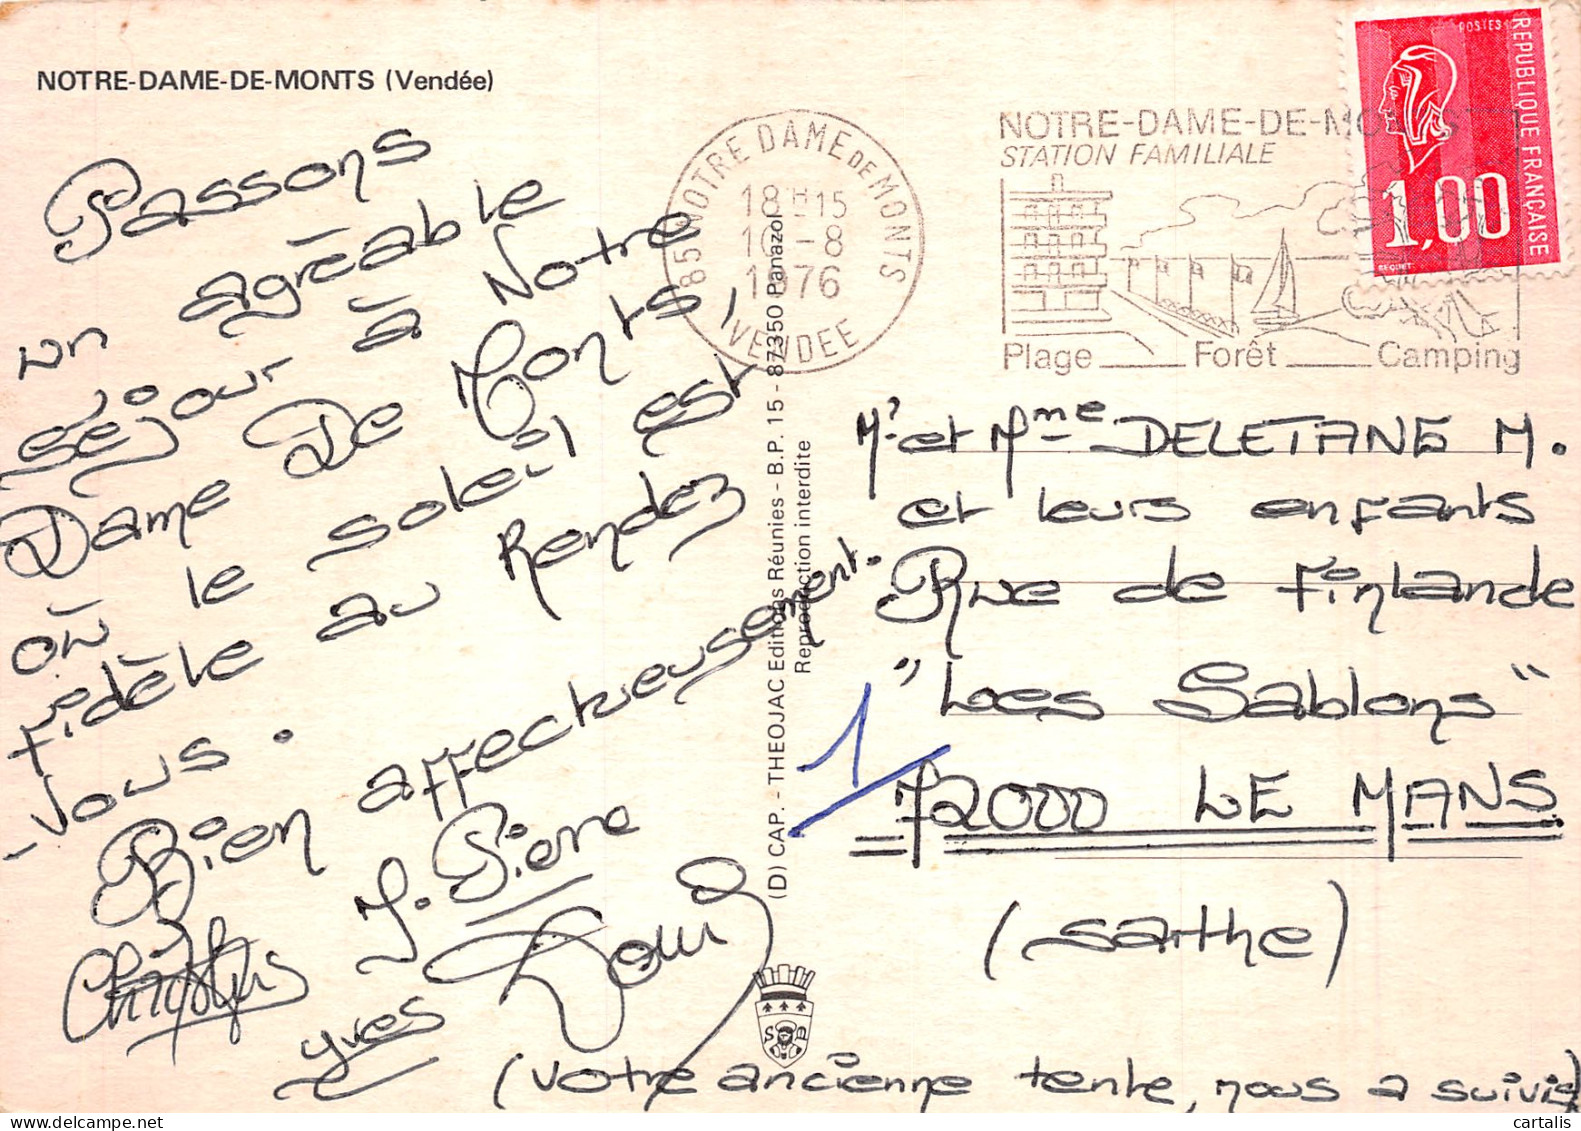 NOTRE-DAME-DE-MONTS (Vendée)
Passons
un agréable
séjour à Notre
Dame De Monts,
où le soleil est
fidèle au Rendez
-vous.
Bien affectueusement.
J. Pierre
Yves
85 NOTRE DAME DE MONTS
18H15
8
1976
VENDEE
NOTRE-DAME-DE-MONTS
STATION FAMILIALE
Plage Forêt Camping
POSTES
REPUBLIQUE FRANÇAISE
1,00
BEQUET
(D) CAP. - THEOJAC Editions Réunies - B.P. 15 - 87350 Panazol
Reproduction interdite
Mr et Mme DELETANG M.
et leurs enfants
Rue de Finlande
"Les Sablons"
1
72000 LE MANS
(Sarthe)
(votre ancienne tente, nous a suivis)
cartalis